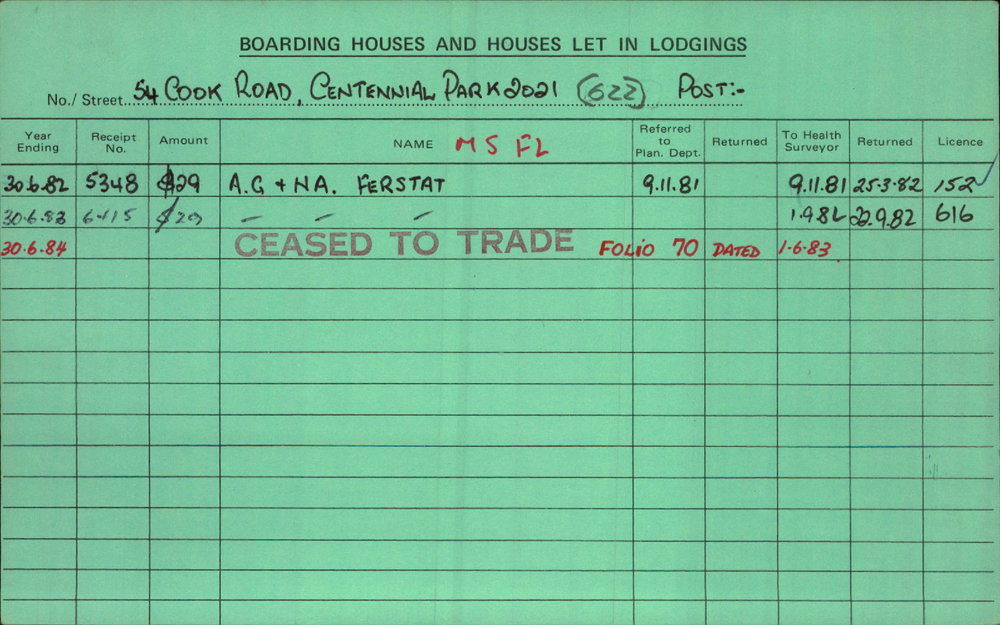 BOARDING HOUSES AND HOUSES LET IN LODGINGS
No./ Street. 54 COOK ROAD, CENTENNIAL PARK 2021 (622) POST:-
Year Ending Receipt No. Amount NAME MS FL Referred to Plan. Dept. Returned To Health Surveyor Returned Licence
30.6.82 5348 $29 A.G + HA. FERSTAT 9.11.81 9.11.81 25.3.82 152
30.6.83 $29 — — — 1.9.82 22.9.82 616
30.6.84 CEASED TO TRADE FOLIO 70 DATED 1-6-83